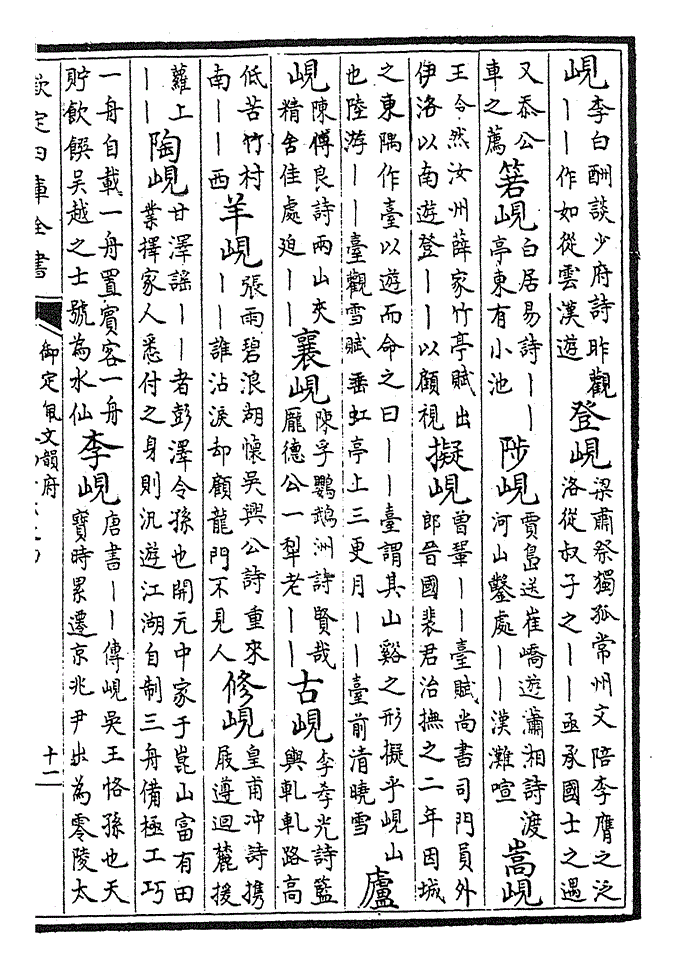 峴李白酬談少府詩昨觀丨丨作如從雲漢遊登峴梁肅祭獨孤常州文陪李膺之泛洛從叔子之丨丨亟承國士之遇
又忝公車之薦箬峴白居易詩丨丨亭東有小池陟峴賈島送崔嶠遊瀟湘詩渡河山鑿處丨丨漢灘喧嵩峴
王令然汝州薛家竹亭賦出伊洛以南遊登丨丨以顧視擬峴曾鞏丨丨臺賦尚書司門員外郎晉國裴君治撫之二年因城
之東隅作臺以遊而命之曰丨丨臺謂其山谿之形擬乎峴山也陸游丨丨臺觀雪賦垂虹亭上三更月丨丨臺前清曉雪廬
峴陳傅良詩兩山夾精舍佳處迫丨丨襄峴陳孚鸚鵡洲詩賢哉龐德公一犁老丨丨古峴李孝光詩籃輿軋軋路高
低苦竹村南丨丨西羊峴張雨碧浪湖懷吳興公詩重來丨丨誰沾淚却顧龍門不見人修峴皇甫冲詩携屐遵迴麓援
蘿上丨丨陶峴甘澤謠丨丨者彭澤令孫也開元中家于崑山富有田業擇家人悉付之身則汎遊江湖自制三舟備極工巧
一舟自載一舟置賓客一舟貯飲饌吳越之士號為水仙李峴唐書丨丨傳峴吳王恪孫也天寶時累遷京兆尹出為零陵太
欽定四庫全書
御定佩文韻府
十二